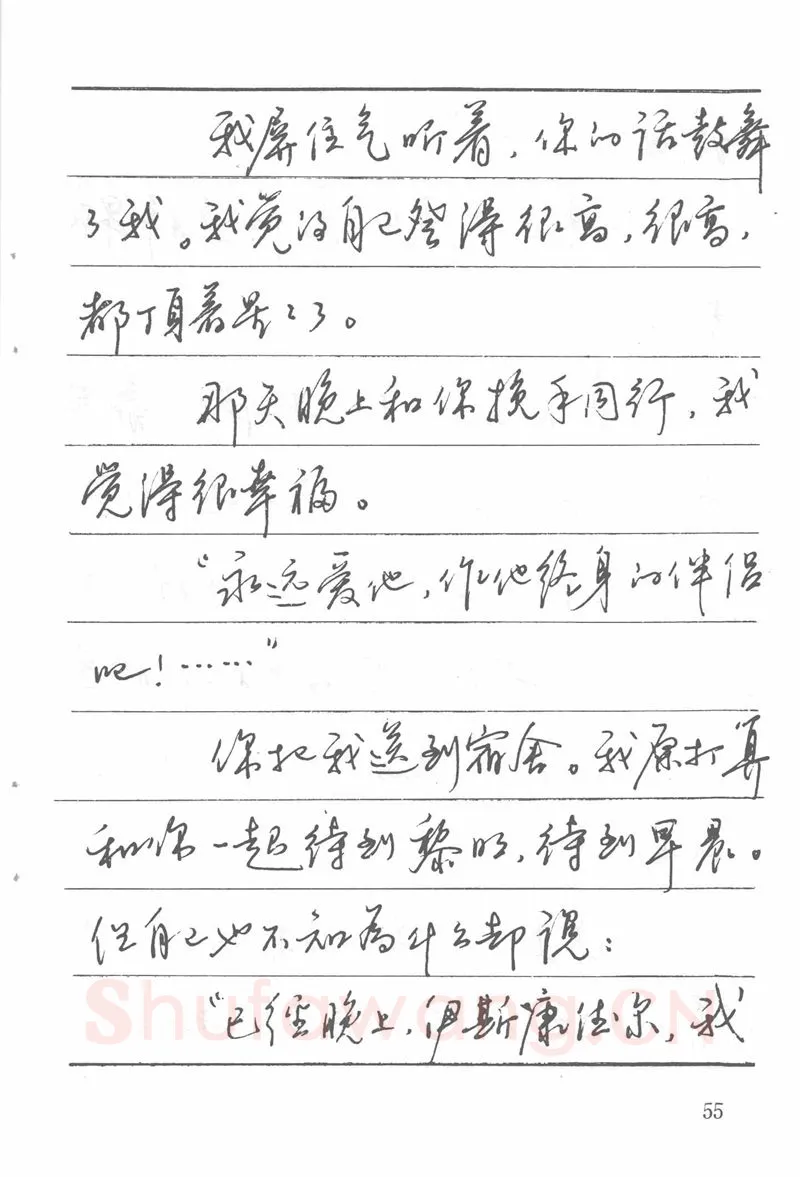 我屏住气听着，你的话鼓舞
了我。我觉得自己登得很高，很高，
都顶着星星了。
那天晚上和你挽手同行，我
觉得很幸福。
“永远爱他，作他终身的伴侣
吧！……”
你把我送到宿舍。我原打算
和你一起待到黎明，待到早晨。
但自己也不知为什么却说：
“已经晚上，伊斯康德尔，我
Shufawang.CN
55